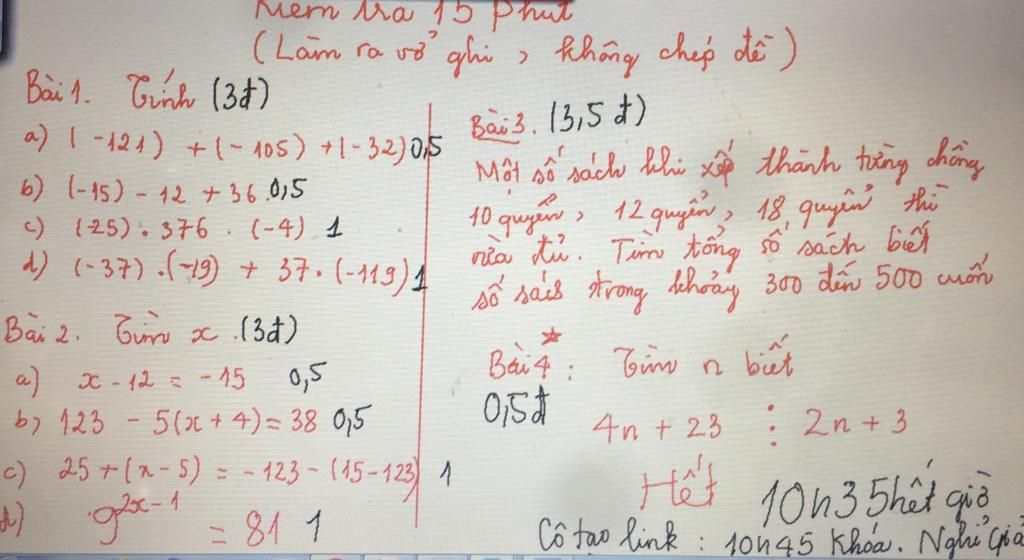 Kiểm tra 15 phút
(Làm ra vở ghi, không chép đề)
Bài 1. Tính (3đ)
a) (-121) + (-105) + (-32) 0,5
b) (-15) - 12 + 36 0,5
c) (-25) . 376 . (-4) 1
d) (-37) . (-19) + 37 . (-119) 1
Bài 2. Tìm x. (3đ)
a) x - 12 = -15 0,5
b) 123 - 5(x + 4) = 38 0,5
c) 25 + (x - 5) = -123 - (15 - 123) 1
d) 9^{2x-1} = 81 1
Bài 3. (3,5 đ)
Một số sách khi xếp thành từng chồng
10 quyển, 12 quyển, 18 quyển thì
vừa đủ. Tìm tổng số sách biết
số sách trong khoảng 300 đến 500 cuốn
Bài 4*: Tìm n biết
0,5đ
4n + 23 ⋮ 2n + 3
Hết
10h35 hết giờ
Cô tạo link : 10h45 Khóa. Nghỉ giả